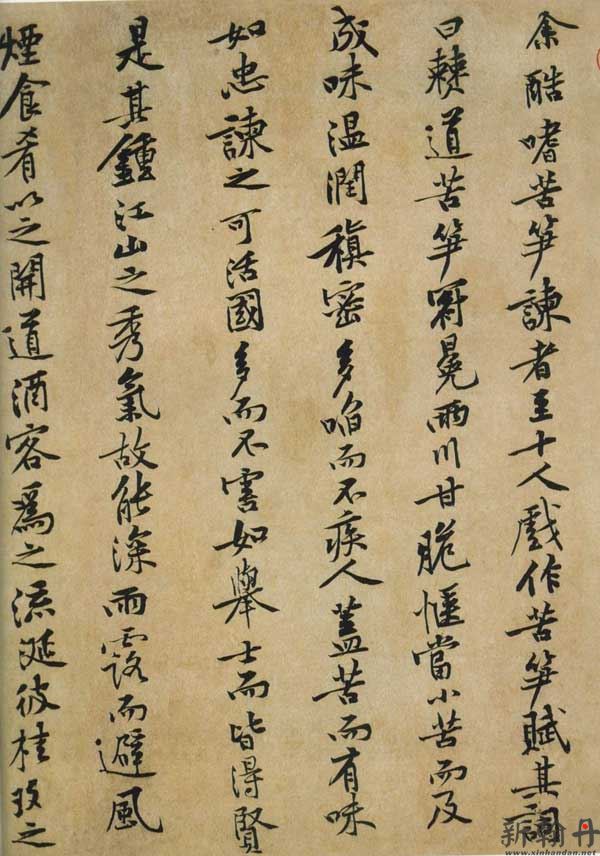 余酷嗜苦笋諫者至十人戲作苦笋賦其詞
曰僰道苦笋冠冕兩川甘脆愜當小苦而反
成味温潤稹密多啗而不疾人蓋苦而有味
如忠諫之可活國多而不害如舉士而皆得賢
是其鍾江山之秀氣故能深雨露而避風
煙食肴以之開道酒客爲之流涎彼桂玫之
新翰丹
www.xinhandan.net